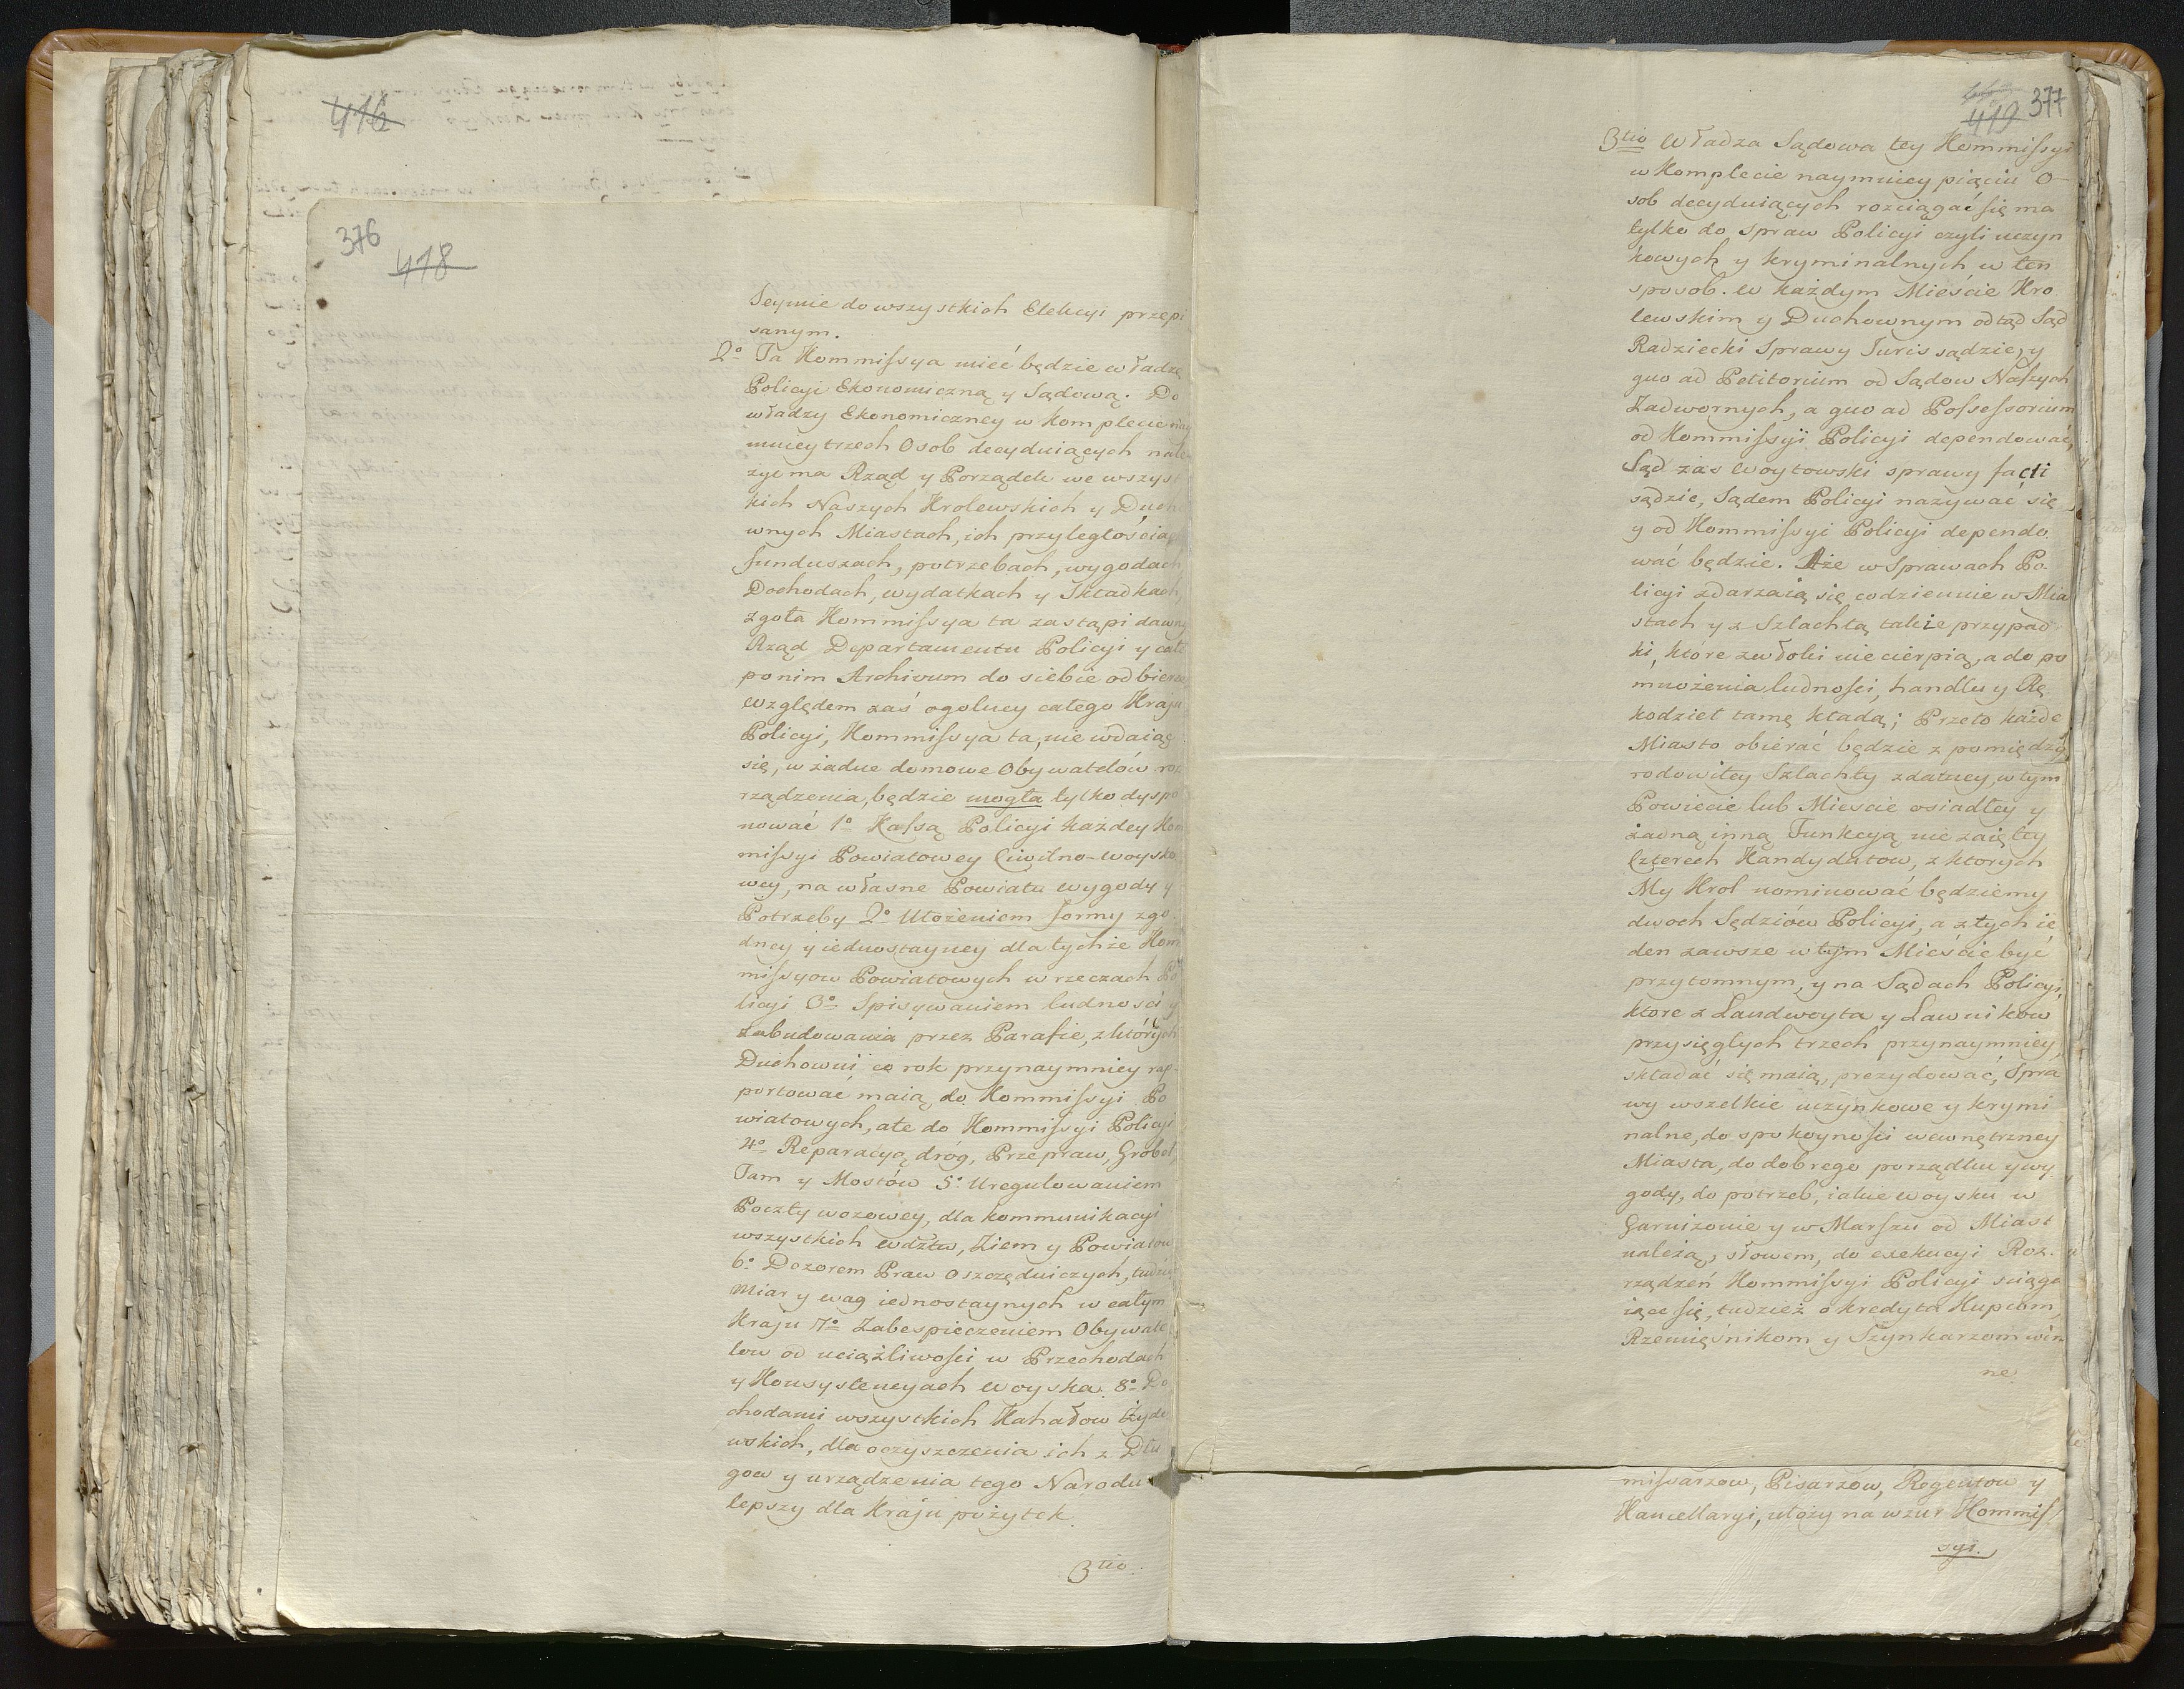 416
376
418
Seymie do wszystkich Elekcyi przepi
sanym.
2º Ta Kommissya mieć będzie władzę
Policyi Ekonomiczną y Sądową. Do
władzy Ekonomiczney w komplecie nay
mniey trzech Osob decyduiących nale
zyć ma Rząd y Porządek we wszyst
kich Naszych Krolewskich y Ducho
wnych Miastach, ich przyległościach
funduszach, potrzebach, wygodach
Dochodach, wydatkach y Składkach,
zgoła Kommissya ta zastąpi dawny
Rząd Departamentu Policyi y całe
po nim Archivum do siebie odbierze
względem zaś ogolney całego Kraju
Policyi, Kommissya ta, nie wdaiąc
się, w żadne domowe Obywatelów roz
rządzenia, będzie mogła tylko dyspo
nować 1º Kassą Policyi każdey Kom
missyi Powiatowey Civilno-woysko
wey, na własne Powiatu wygody y
Potrzeby 2º Ułożeniem formy zgo
dney y iednostayney dla tychże Kom
missyow Powiatowych w rzeczach Po
licyi 3º Spisywaniem ludności y
zabudowania przez Parafie, z których
Duchowni co rok przynaymniey rap
portować maią do Kommissyi Po
wiatowych, ale do Kommissyi Policyi
4º Reparacyą dróg, Przepraw, Grobel,
Tam y Mostów 5º Uregulowaniem
Poczty wozowey, dla kommunikacyi
wszystkich wdztw, Ziem y Powiatow
6º Dozorem Praw oszczędniczych, tudzież
Miar y wag iednostaynych w całym
Kraju 7º Zabespieczeniem Obywate
low od uciążliwości w Przechodach
y Konsystencyach woyska. 8º Do
chodami wszystkich Kahałow Żydo
wskich, dla oczyszczenia ich z Dłu
gow y urządzenia tego Narodu
lepszy dla Kraju pożytek.
3tio.
419 377
3tio Władza Sądowa tey Kommissyi
w Komplecie naymniey pięciu O
sob decyduiących rozciągać się ma
tylko do spraw Policyi czyli uczyn
kowych y kryminalnych w ten
sposob. w każdym Mieście Kro
lewskim y Duchownym odtąd Sąd
Radziecki Sprawy Juris sądzie, y
quo ad Petitorium od Sądow Naszych
Zadwornych, a quo ad Possessorium
od Kommissyi Policyi dependować,
Sąd zaś woytowski sprawy facti
sądzie, Sądem Policyi nazywać się
y od Kommissyi Policyi dependo
wać będzie. Aże w Sprawach Po
licyi zdarzaią się codziennie w Mia
stach y z Szlachtą takie przypad
ki, które zwłoki nie cierpią, a do po
mnożenia ludności, handlu y Rę
kodzieł tamę kładą; Przeto każde
Miasto obierać będzie z pomiędzy
rodowitey Szlachty zdatney, w tym
Powiecie lub Mieście osiadłey y
żadną inną Funkcyą nie zaiętey
Czterech Kandydatow, z ktorych
My Krol nominować będziemy
dwoch Sędziów Policyi, a z tych ie
den zawsze w tym Mieście być
przytomnym, y na Sądach Policyi,
ktore z Landwoyta y Lawnikow
przysięgłych trzech przynaymniey
składać się maią, prezydować, Spra
wy wszelkie uczynkowe y krymi
nalne, do spokoyności wewnętrzney
Miasta, do dobrego porządku y wy
gody, do potrzeb, iakie woysku w
Garnizonie y w Marszu od Miast
należą, słowem, do exekucyi Roz-
rządzeń Kommissyi Policyi sciąga
iące się, tudzież o kredyta Kupcom,
Rzemięśnikom y Szynkarzom win
ne
missarzow, Pisarzow, Regentow y
Kancellaryi, ułoży na wzur Kommis
syi.